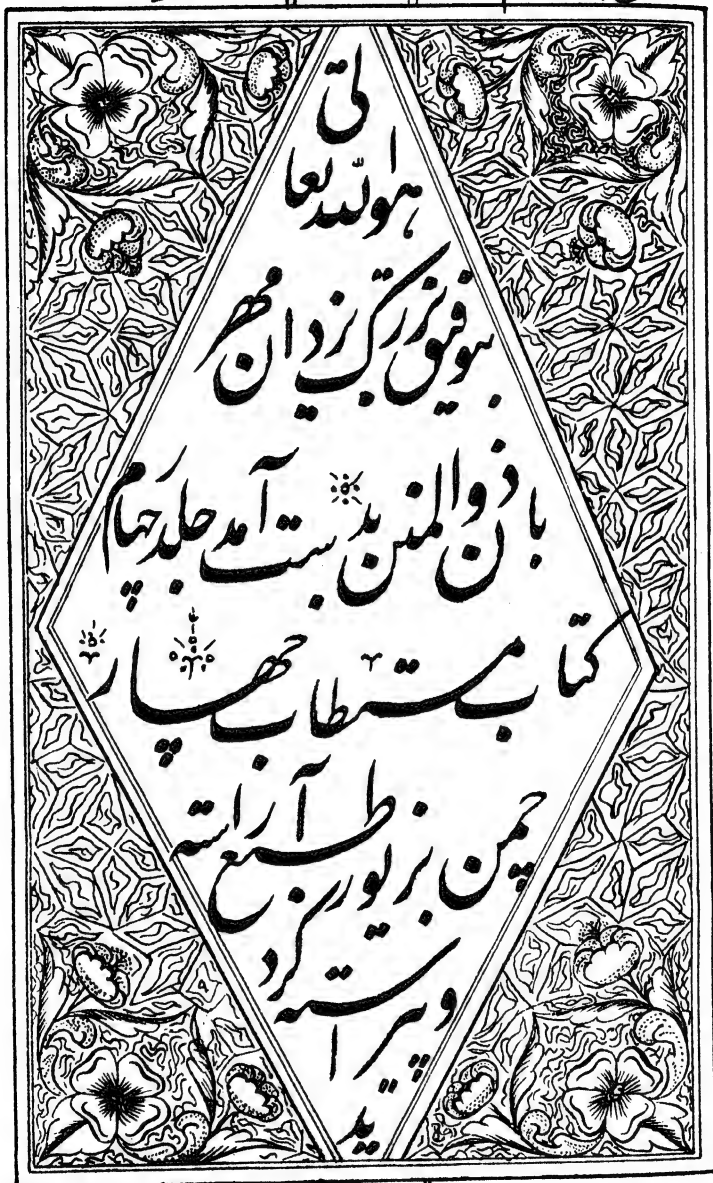 هوالله تعالی
بتوفیق بزرگ یزدان مهر
بان ذوالمنن بدست آمد جلد چهارم
کتاب مستطاب چهار
چمن بزیور طبع آراسته
و پیراسته گرد
ید